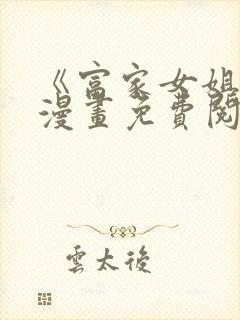 《富家女姐
漫畫免費閱
雲太後